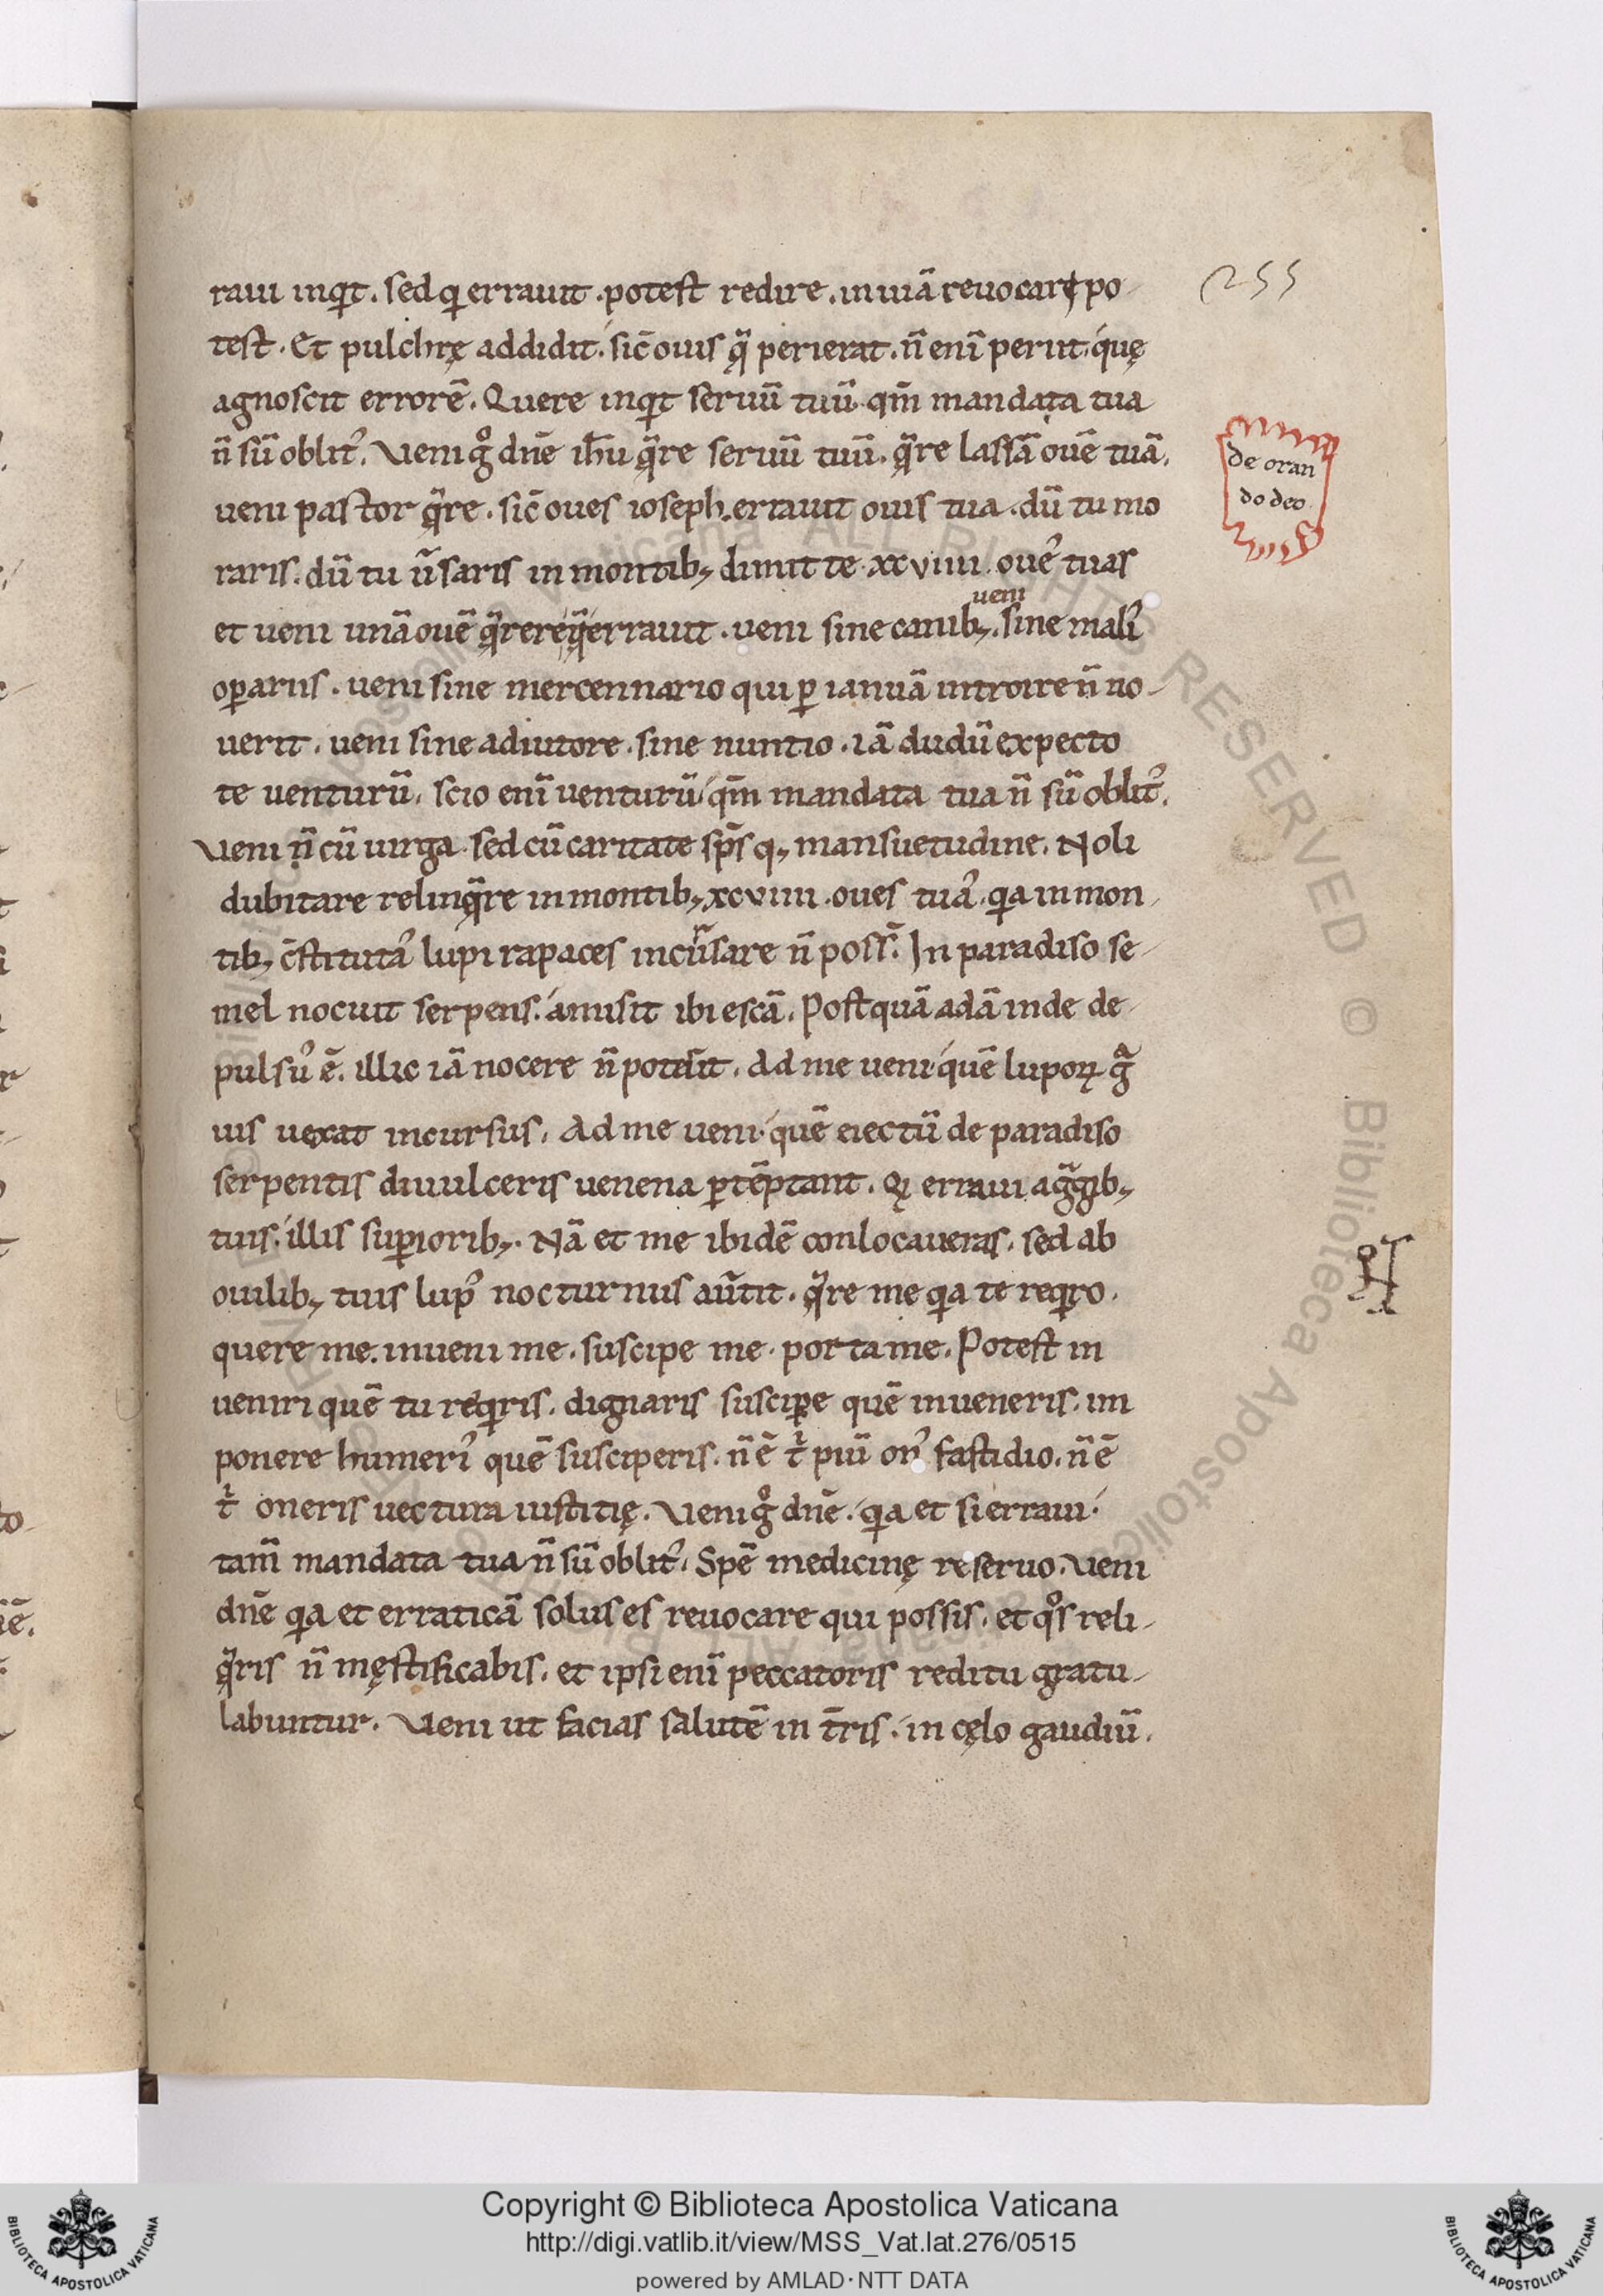 255
raui inqt. sed q errauit. potest redire. in uiā reuocari po-
test. Et pulchrę addidit. sic̄ ouis q̄ perierat. n̄ eni̅ periit quę
agnoscit errorē. Quere inqt seruū tuū. qm̄ mandata tua
n̄ sū oblit᾽. Veni gͦ dnē ih̄u q̄re seruū tuū. q̄re lassā ouē tuā.
de oran
do deo
ueni pastor q̄re. sic̄ oues ioseph. errauit ouis tua. dū tu mo
raris. dū tu ūsaris in montib; dimitte xcviiii. oue᾽ tuas
et ueni unā ouē q̄rere q̄ errauit. ueni sine canib;. ueni sine mali᾽
oꝑariis. ueni sine mercennario qui ꝑ ianuā introire n̄ no-
uerit. ueni sine adiutore. sine nuntio. iā dudū expecto
te uenturū. scio eni̅ uenturū qm̄ mandata tua n̄ sū oblit᾽.
Veni n̄ cū uirga sed cū caritate sp̄s q; mansuetudine. Noli
dubitare relinq̄re in montib; xcviiii. oues tua᾽. qa in mon-
tib; c̄stituta᾽ lupi rapaces incūsare n̄ poss̄. In paradiso se-
mel nocuit serpens. amisit ibi escā. Postquā adā inde de-
pulsu᾽ ē. illic iā nocere n̄ potērit. Ad me ueni quē lupoꝝ gͣ
uis uexat incursus. Ad me ueni quē eiectū de paradiso
serpentis diu ulceris uenena ꝑtēptant. Qi erraui a gͣgib;
tuis. illis suꝑiorib;. Nā et me ibidē conlocaueras. sed ab
ouilib; tuis lup᾽ nocturnus aūtit. q̄re me qa te reqro.
quere me. inueni me. suscipe me. porta me. Potest in
ueniri quē tu reqris. dignaris susciꝑe quē inueneris. im
ponere humeri᾽ quē susciperis. n̄ ē t̄ piū on᾽ fastidio. n̄ ē
t̄ oneris uectura iustitię. Veni gͦ dnē. qa et si erraui.
tam̄ mandata tua n̄ sū oblit᾽. Spē medicinę reseruo. Veni
dnē qa et erraticā solus es reuocare qui possis. et qͦs reli-
q̄ris n̄ męstificabis. et ipsi eni̅ peccatoris reditu gratu-
labuntur. Veni ut facias salutē in t̄ris. in cęlo gaudiū.
Copyright © Biblioteca Apostolica Vaticana
http://digi.vatlib.it/view/MSS_Vat.lat.276/0515
powered by AMLAD·NTT DATA
BIBLIOTECA APOSTOLICA VATICANA
BIBLIOTECA APOSTOLICA VATICANA